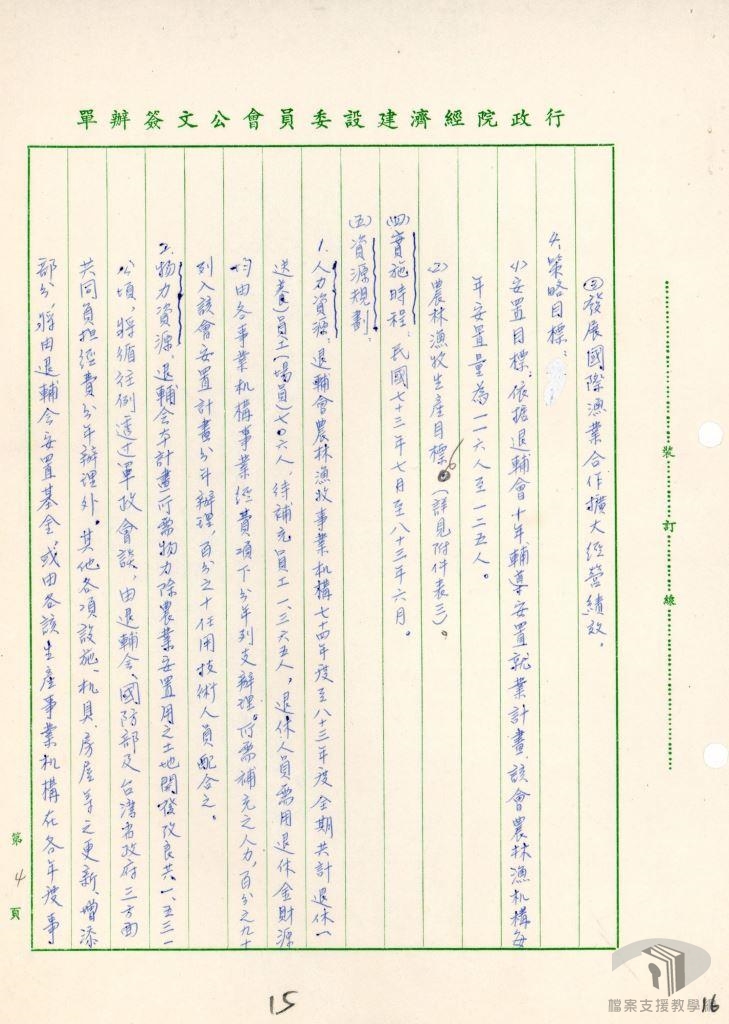 行政院經濟建設委員會公文簽辦單
③發展國際漁業合作擴大經營績效。
4.策略目標：
⑴安置目標：依據退輔會十年輔導安置就業計畫，該會農林漁機構每
年安置量為一一六人至一二五人。
⑵農林漁牧生產目標。（詳見附件表三）。
㈣實施時程：民國七十三年七月至八十三年六月。
㈤資源規劃：
1.人力資源：退輔會農林漁牧事業机構七十四年度至八十三年度全期共計退休（
送養）員工（場員）七〇六人，待補充員工一、三六五人，退休人員需用退休金財源
均由各事業机構事業經費項下分年列支辦理。所需補充之人力，百分之九十
列入該會安置計畫分年辦理，百分之十任用技術人員配合之。
2.物力資源，退輔会本計畫所需物力除農業安置用之土地開發改良共一、五三一
公頃，將循往例透过軍政會談，由退輔会、國防部及台湾省政府三方面
共同負担經費分年辦理外。其他各項設施、机具、房屋等之更新、增添
部分將由退輔会安置基金或由各該生產事業机構在各年度事
裝
訂
線
第4頁
15
16
檔案支援教學網